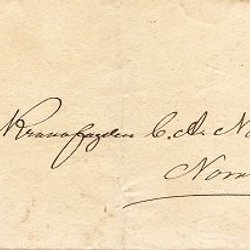 Kronofogden C. A. No
Norr